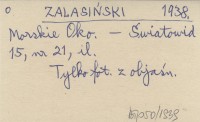 o ZALASIŃSKI 1938.
Morskie Oko. – Światowid
15, nr 21, il.
Tylko fot. z objaśn.
050/1938